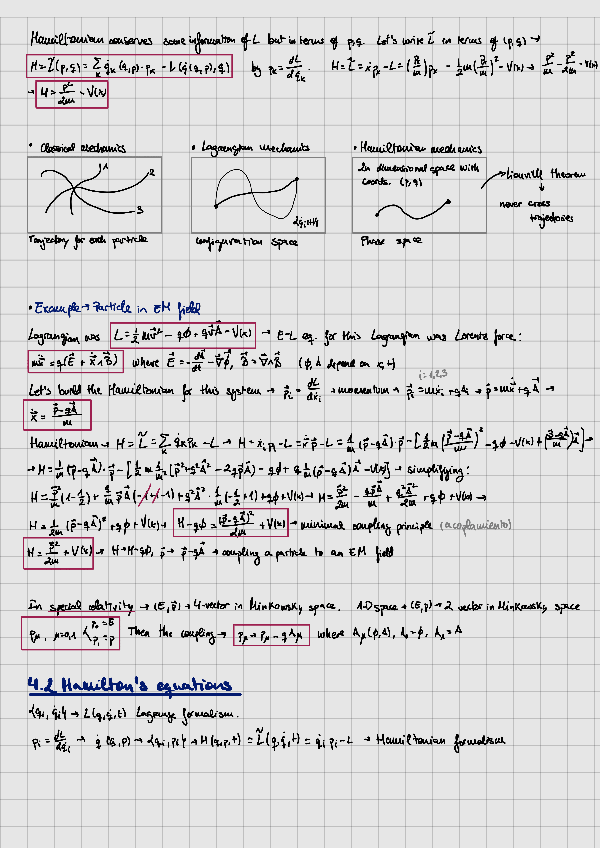 Hamiltonian conserves some information of L but in terms of p,q. Let's write L̃ in terms of (p,q) →
H = L̃(p,q) = Σ_k q̇_k(q,p)·p_k − L(q̇(q,p),q) by p_k = dL/dq̇_k H = L̃ = ẋp_x − L = (p_x/m)p_x − 1/2 m(p_x/m)² − V(x) → p²/m − p²/2m − V(x)
→ H = p²/2m − V(x)
• Classical mechanics • Lagrangian mechanics • Hamiltonian mechanics
1
2
3
2n dimensional space with
coords. (p,q)
→ Liouville theorem
↓
never cross
trajectories
Trajectory for each particle Configuration space Phase space
• Example → Particle in EM field
Lagrangian was L = 1/2 mv⃗² − qϕ + qv⃗A⃗ − V(x) → E-L eq. for this Lagrangian was Lorentz force:
mẍ = q(E⃗ + ẋ⃗∧B⃗) where E⃗ = −dA⃗/dt − ∇⃗ϕ, B⃗ = ∇⃗∧A⃗ (ϕ, A depend on x,t)
i = 1,2,3
Let's build the Hamiltonian for this system → p⃗_i = dL/dẋ_i → momentum → p⃗_i = mẋ_i + qA_i → p⃗ = mẋ⃗ + qA⃗ →
ẋ⃗ = (p⃗ − qA⃗)/m
Hamiltonian → H = L̃ = Σ_k q̇_k p_k − L → H = ẋ_i p_i − L = ẋ⃗p⃗ − L = 1/m (p⃗ − qA⃗)·p⃗ − [1/2 m((p⃗ − qA⃗)/m)² − qϕ − V(x) + q((p⃗ − qA⃗)/m)A⃗] →
→ H = 1/m (p⃗ − qA⃗)·p⃗ − [1/2 m 1/m² [p⃗² + q²A⃗² − 2qp⃗A⃗) − qϕ + q 1/m (p⃗ − qA⃗)A⃗ − V(x)] → simplifying:
H = p⃗²/m (1 − 1/2) + q/m p⃗A⃗ (−1 + 1 − 1) + q²A⃗² · 1/m (−1/2 + 1) + qϕ + V(x) → H = p⃗²/2m − qp⃗A⃗/m + q²A⃗²/2m + qϕ + V(x) →
H = 1/2m (p⃗ − qA⃗)² + qϕ + V(x) → H − qϕ = (p⃗ − qA⃗)²/2m + V(x) → minimal coupling principle (acoplamiento)
H = p⃗²/2m + V(x) → H → H − qϕ, p⃗ → p⃗ − qA⃗ → coupling a particle to an EM field
In special relativity → (E,p⃗) → 4-vector in Minkowsky space. 1-D space → (E,p) → 2 vector in Minkowsky space
p_μ, μ=0,1 < p_0 = E p_1 = p Then the coupling → p_μ → p_μ − qA_μ where A_μ(ϕ,A), A_0 = ϕ, A_1 = A
4.2 Hamilton's equations
{q_i, q̇_i} → L(q,q̇,t) Lagrange formalism.
p_i = dL/dq̇_i → q̇(q,p) → {q_i,p_i} → H(q,p,t) = L̃(q,q̇,t) = q̇_i p_i − L → Hamiltonian formalism